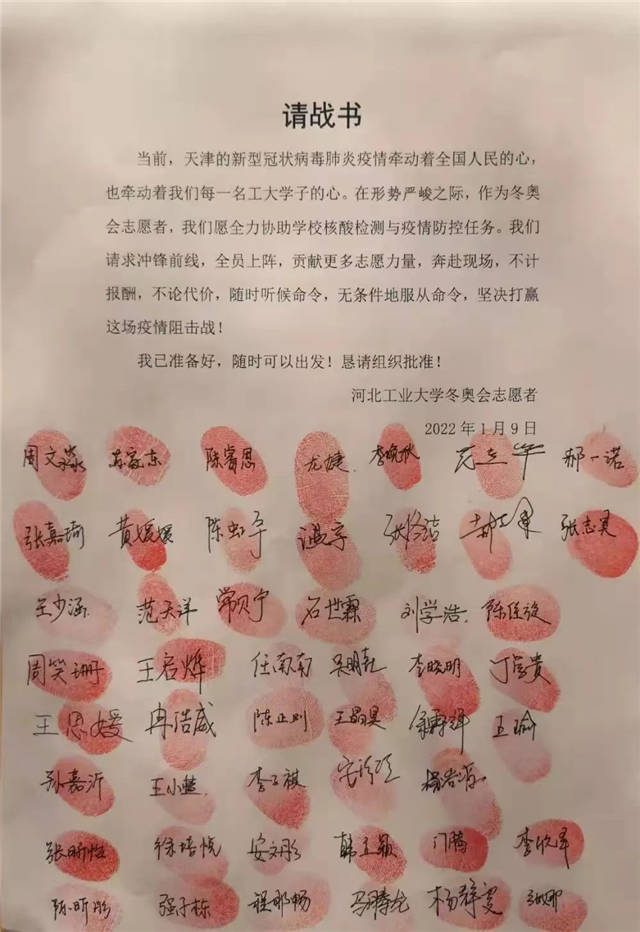 请战书
当前，天津的新型冠状病毒肺炎疫情牵动着全国人民的心，
也牵动着我们每一名工大学子的心。在形势严峻之际，作为冬奥
会志愿者，我们愿全力协助学校核酸检测与疫情防控任务。我们
请求冲锋前线，全员上阵，贡献更多志愿力量，奔赴现场，不计
报酬，不论代价，随时听候命令，无条件地服从命令，坚决打赢
这场疫情阻击战！
我已准备好，随时可以出发！恳请组织批准！
河北工业大学冬奥会志愿者
2022 年 1 月 9 日
周文淼 苏家东 陈睿思 尤婕 郝一诺
张嘉瑜 黄媛媛 张志灵
王少涵 范天洋 常贝宁 石世霖 刘学浩
周笑珊 王启烨 任南南 李晓明 丁富贵
王思媛 冉浩威 陈正则 王晶昊 王瑜
孙嘉沂 王小慧
张昕怡 徐培悦 安文彤 韩玉颖 门腾 李欣泽
陈昕彤 强子栋 程那畅 马腾龙 杨梓雯